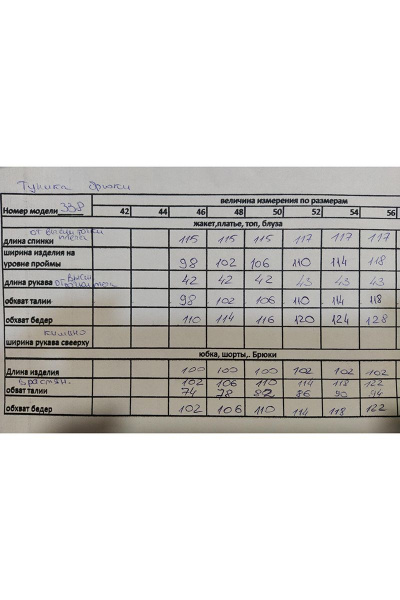 Туника брюки
величина измерения по размерам
Номер модели 338 42 44 46 48 50 52 54 56
жакет,платье, топ, блуза
от высш точки
длина спинки 115 115 115 117 117 117
ширина изделия на
уровне проймы 98 102 106 110 114 118
длина рукава от высш 42 42 42 43 43 43
обхват талии 98 102 106 110 114 118
обхват бедер 110 114 116 120 124 128
кимоно
ширина рукава свеерху
юбка, шорты,. Брюки
Длина изделия 100 100 100 102 102 102
в растян. 102 106 110 114 118 122
обват талии 74 78 82 86 90 94
обхват бедер 102 106 110 114 118 122